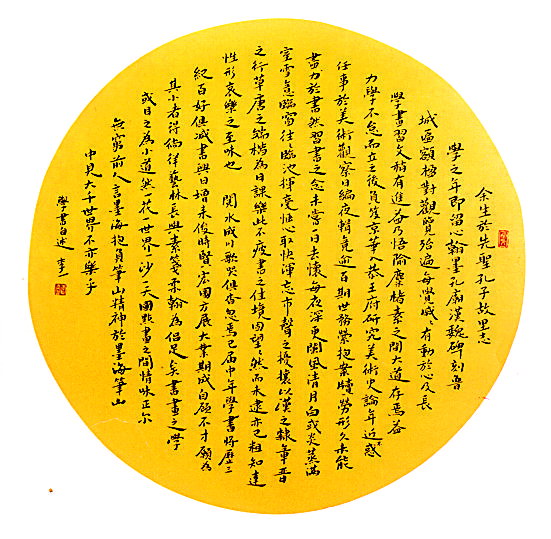 余生於先聖孔子故里志
學之年即留心翰墨孔廟漢魏碑刻魯
城匾額楹對觀覽殆遍每覺戚戚有動於心及長
學書習文稍有進益乃悟隃麋楮素之間大道存焉益
力學不怠而立之後負笈京華入恭王府研究美術史論年近不惑
任事於美術觀察日編夜輯竟逾百期世務縈抱案牘勞形久未能
盡力於書然習書之念未嘗一日去懷每夜深更闌風清月白或炎蒸滿
室雪意臨窗往往臨池揮毫惟心取快渾忘市聲之擾攘以漢之隸章晋
之行草唐之端楷為日課樂此不疲書之佳境固望望然而未逮亦已粗知達
性形哀樂之至味也 閱水成川歌哭俱杳忽焉已屆中年學書將歷三
紀百好俱減書興日增未俊時賢宏圖方展大業期成自願不才願為
其小者得徜徉藝林長與素箋柔翰為侶足矣書畫之學
或目之為小道然一花一世界一沙一天國點畫之間情味正亦
無窮前人言墨海抱負筆山精神於墨海筆山
中見大千世界不亦樂乎
學書自述 李一